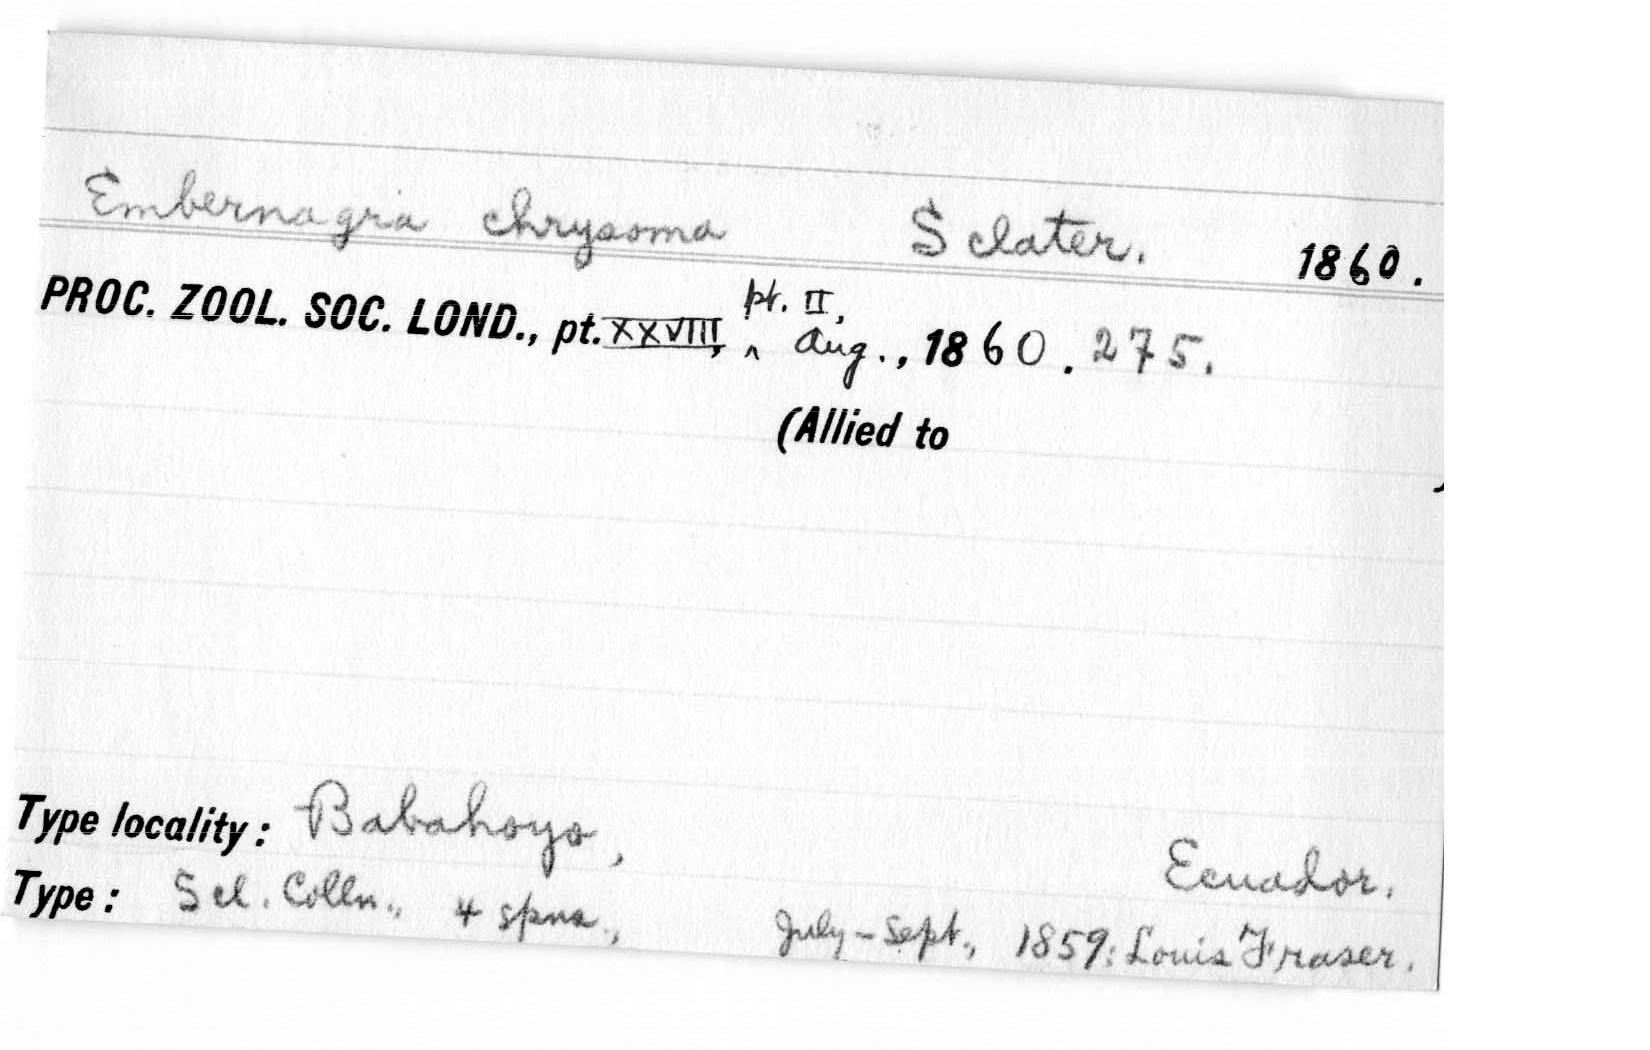 Embernagra chrysoma Sclater. 1860.
PROC. ZOOL. SOC. LOND., pt. XXVIII, ^ pt. II, Aug., 1860. 275.
(Allied to
)
Type locality: Babahoyo, Ecuador.
Type: Scl. Colln., 4 spns., July - Sept., 1859: Louis Fraser.